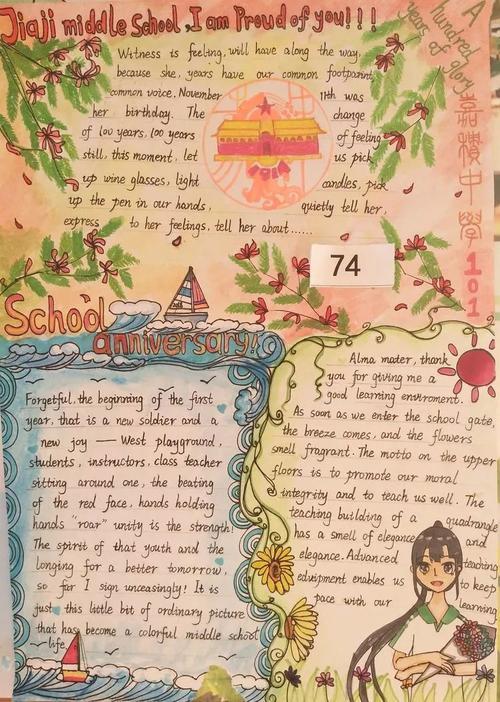 Jiaji middle School, I am Proud of you!!!
A hundred
years of glory
嘉積中學
101
Witness is feeling, will have along the way,
because she, years have our common footprint,
common voice, November 11th was
her birthday. The change
of 100 years, 100 years of feeling
still, this moment, let us pick
up wine glasses, light candles, pick
up the pen in our hands, quietly tell her,
express to her feelings, tell her about......
74
School
anniversary!
Forgetful, the beginning of the first
year, that is a new soldier and a
new joy — West playground,
students, instructors, class teacher
sitting around one, the beating
of the red face, hands holding
hands "roar" unity is the strength!
The spirit of that youth and the
longing for a better tomorrow,
so far I sign unceasingly! It is
just this little bit of ordinary picture
that has become a colorful middle school
life.
Alma mater, thank
you for giving me a
good learning enviroment.
As soon as we enter the school gate,
the breeze comes, and the flowers
smell fragrant. The motto on the upper
floors is to promote our moral
integrity and to teach us well. The
teaching building of a quadrangle
has a smell of elegance and
elegance. Advanced teaching
eduipment enables us to keep
pace with our learning